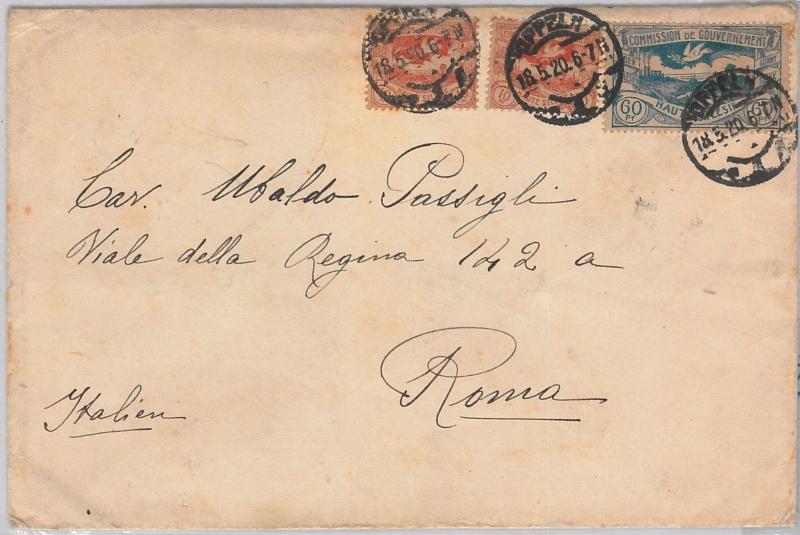 OPPELN
18.5.20.6-7N
OPPELN
18.5.20.6-7N
10
COMMISSION DE GOUVERNEMENT
60 Pf
HAUTE
OPPELN
18.5.20.6-7N
Cav. Ubaldo Passigli
Viale della Regina 142 a
Roma
Italien